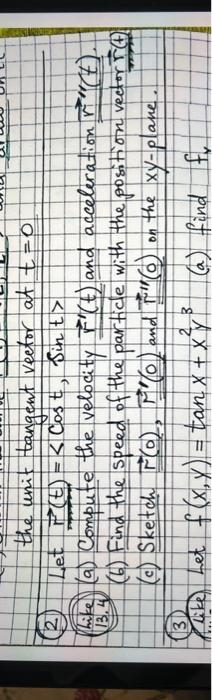 the unit tangent vector at t=0
② Let r⃗(t) = <Cost, Sint>
like 13.4 (a) Compute the velocity r⃗'(t) and acceleration r⃗''(t).
(b) Find the speed of the particle with the position vector r⃗(t)
(c) Sketch r⃗(0), r⃗'(0) and r⃗''(0) on the xy-plane.
③ Let f(x,y) = tan x + x²y³ (a) find fₓ
like